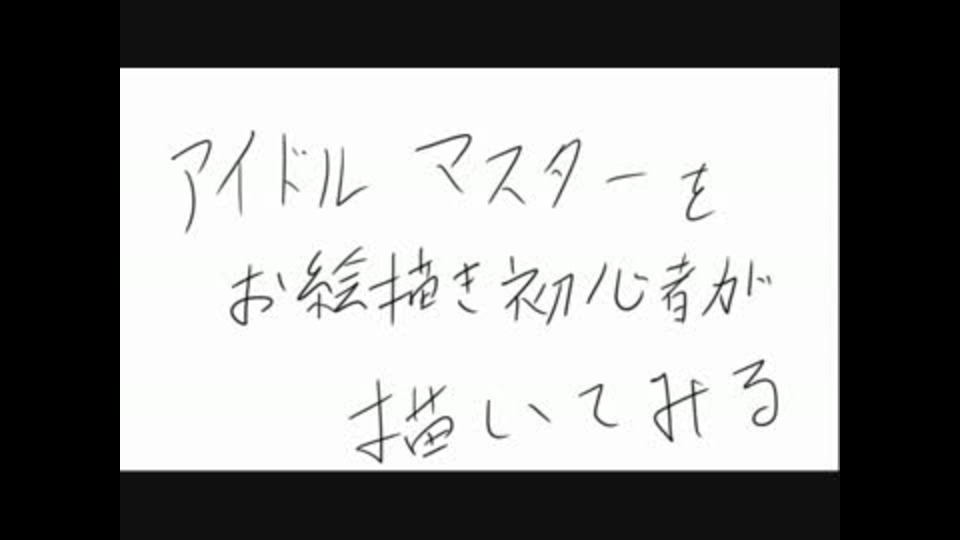 アイドルマスターを
お絵描き初心者が
描いてみる